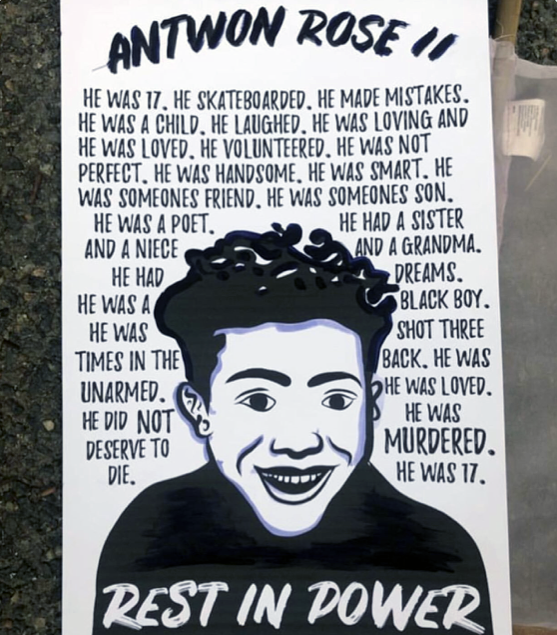 ANTWON ROSE II
HE WAS 17. HE SKATEBOARDED. HE MADE MISTAKES.
HE WAS A CHILD. HE LAUGHED. HE WAS LOVING AND
HE WAS LOVED. HE VOLUNTEERED. HE WAS NOT
PERFECT. HE WAS HANDSOME. HE WAS SMART. HE
WAS SOMEONES FRIEND. HE WAS SOMEONES SON.
HE WAS A POET. HE HAD A SISTER
AND A NIECE AND A GRANDMA.
HE HAD DREAMS.
HE WAS A BLACK BOY.
HE WAS SHOT THREE
TIMES IN THE BACK. HE WAS
UNARMED. HE WAS LOVED.
HE DID NOT HE WAS
DESERVE TO MURDERED.
DIE. HE WAS 17.
REST IN POWER